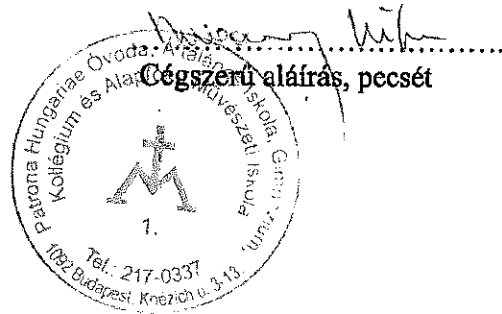 Cégszerű aláírás, pecsét
Patrona Hungariae Óvoda, Általános Iskola, Gimnázium,
Kollégium és Alapfokú Művészeti Iskola
1.
Tel.: 217-0337
1092 Budapest, Knézich u. 3-13.